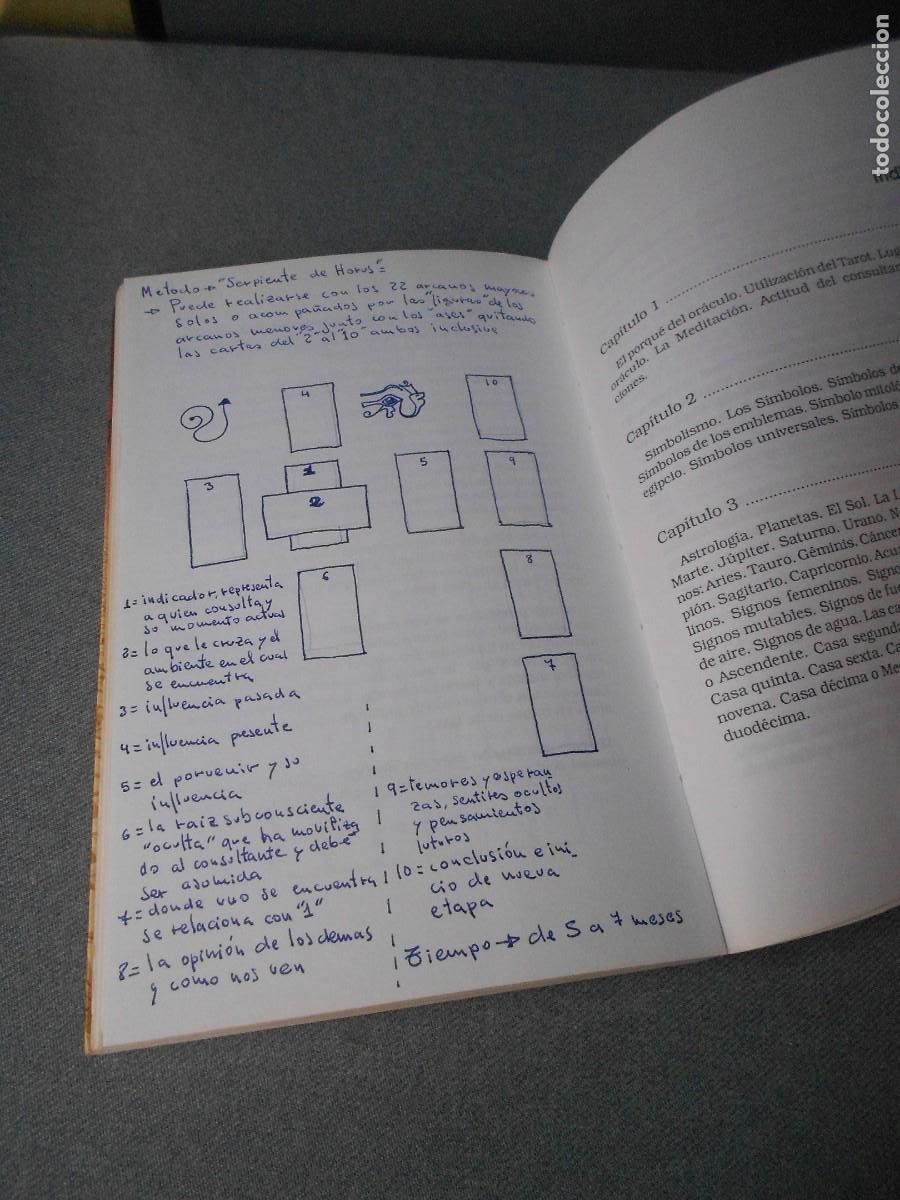 Metodo → "Serpiente de Horus"=
→ Puede realizarse con los 22 arcanos mayores
solos o acompañados por las "figuras" de los
arcanos menores junto con los "ases" quitando
las cartas del "2" al "10" ambos inclusive
4
10
3
1
2
5
9
6
8
7
1= indicador, representa
a quien consulta y
so momento actual
2= lo que le cruza y el
ambiente en el cual
se encuentra
3= influencia pasada
4= influencia presente
5= el porvenir y so
influencia
6= la raiz subconsciente
"oculta" que ha moviliza
do al consultante y debe
ser asumida
7= donde uno se encuentra
se relaciona con "1"
8= la opinión de los demas
y como nos ven
9= temores y esperan
zas, sentires ocultos
y pensamientos
futuros
10= conclusión e ini-
cio de nueva
etapa
Tiempo → de 5 a 7 meses
Capítulo 1
El porqué del oráculo. Utilización del Tarot.
oráculo. La Meditación. Actitud del
ciones.
Capítulo 2
Simbolismo. Los Símbolos. Símbolos
Símbolos de los emblemas. Símbolo
egipcio. Símbolos universales. Símbolos
Capítulo 3
Astrología. Planetas. El Sol. La
Marte. Júpiter. Saturno. Urano.
nos: Aries. Tauro. Géminis.
pión. Sagitario. Capricornio.
linos. Signos femeninos.
Signos mutables. Signos de
de aire. Signos de agua. Las
o Ascendente. Casa
Casa quinta. Casa sexta.
novena. Casa décima o
duodécima.
todocoleccion